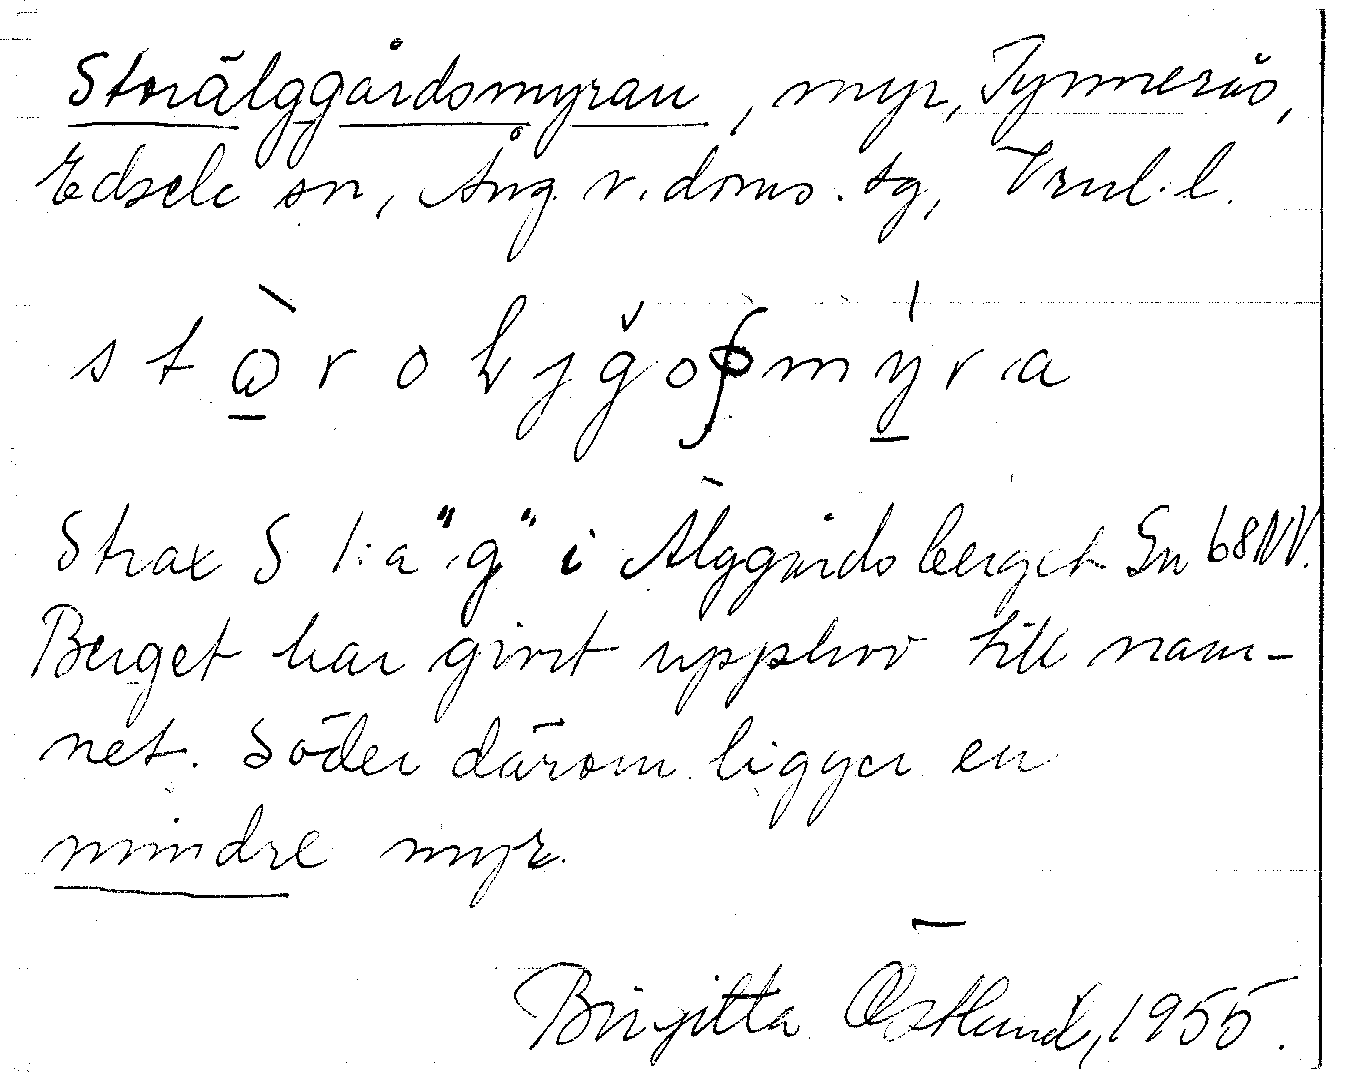 Storälggårdsmyran, myr, Tymmerås,
Edsele sn, Ång. v. doms. tg, Vrnl. l.
Strax S 1:a "g" i Älggårdsberget Gn 68NV.
Berget har givit upphov till nam-
net. Söder därom ligger en
mindre myr.
Birgitta Östlund, 1955.